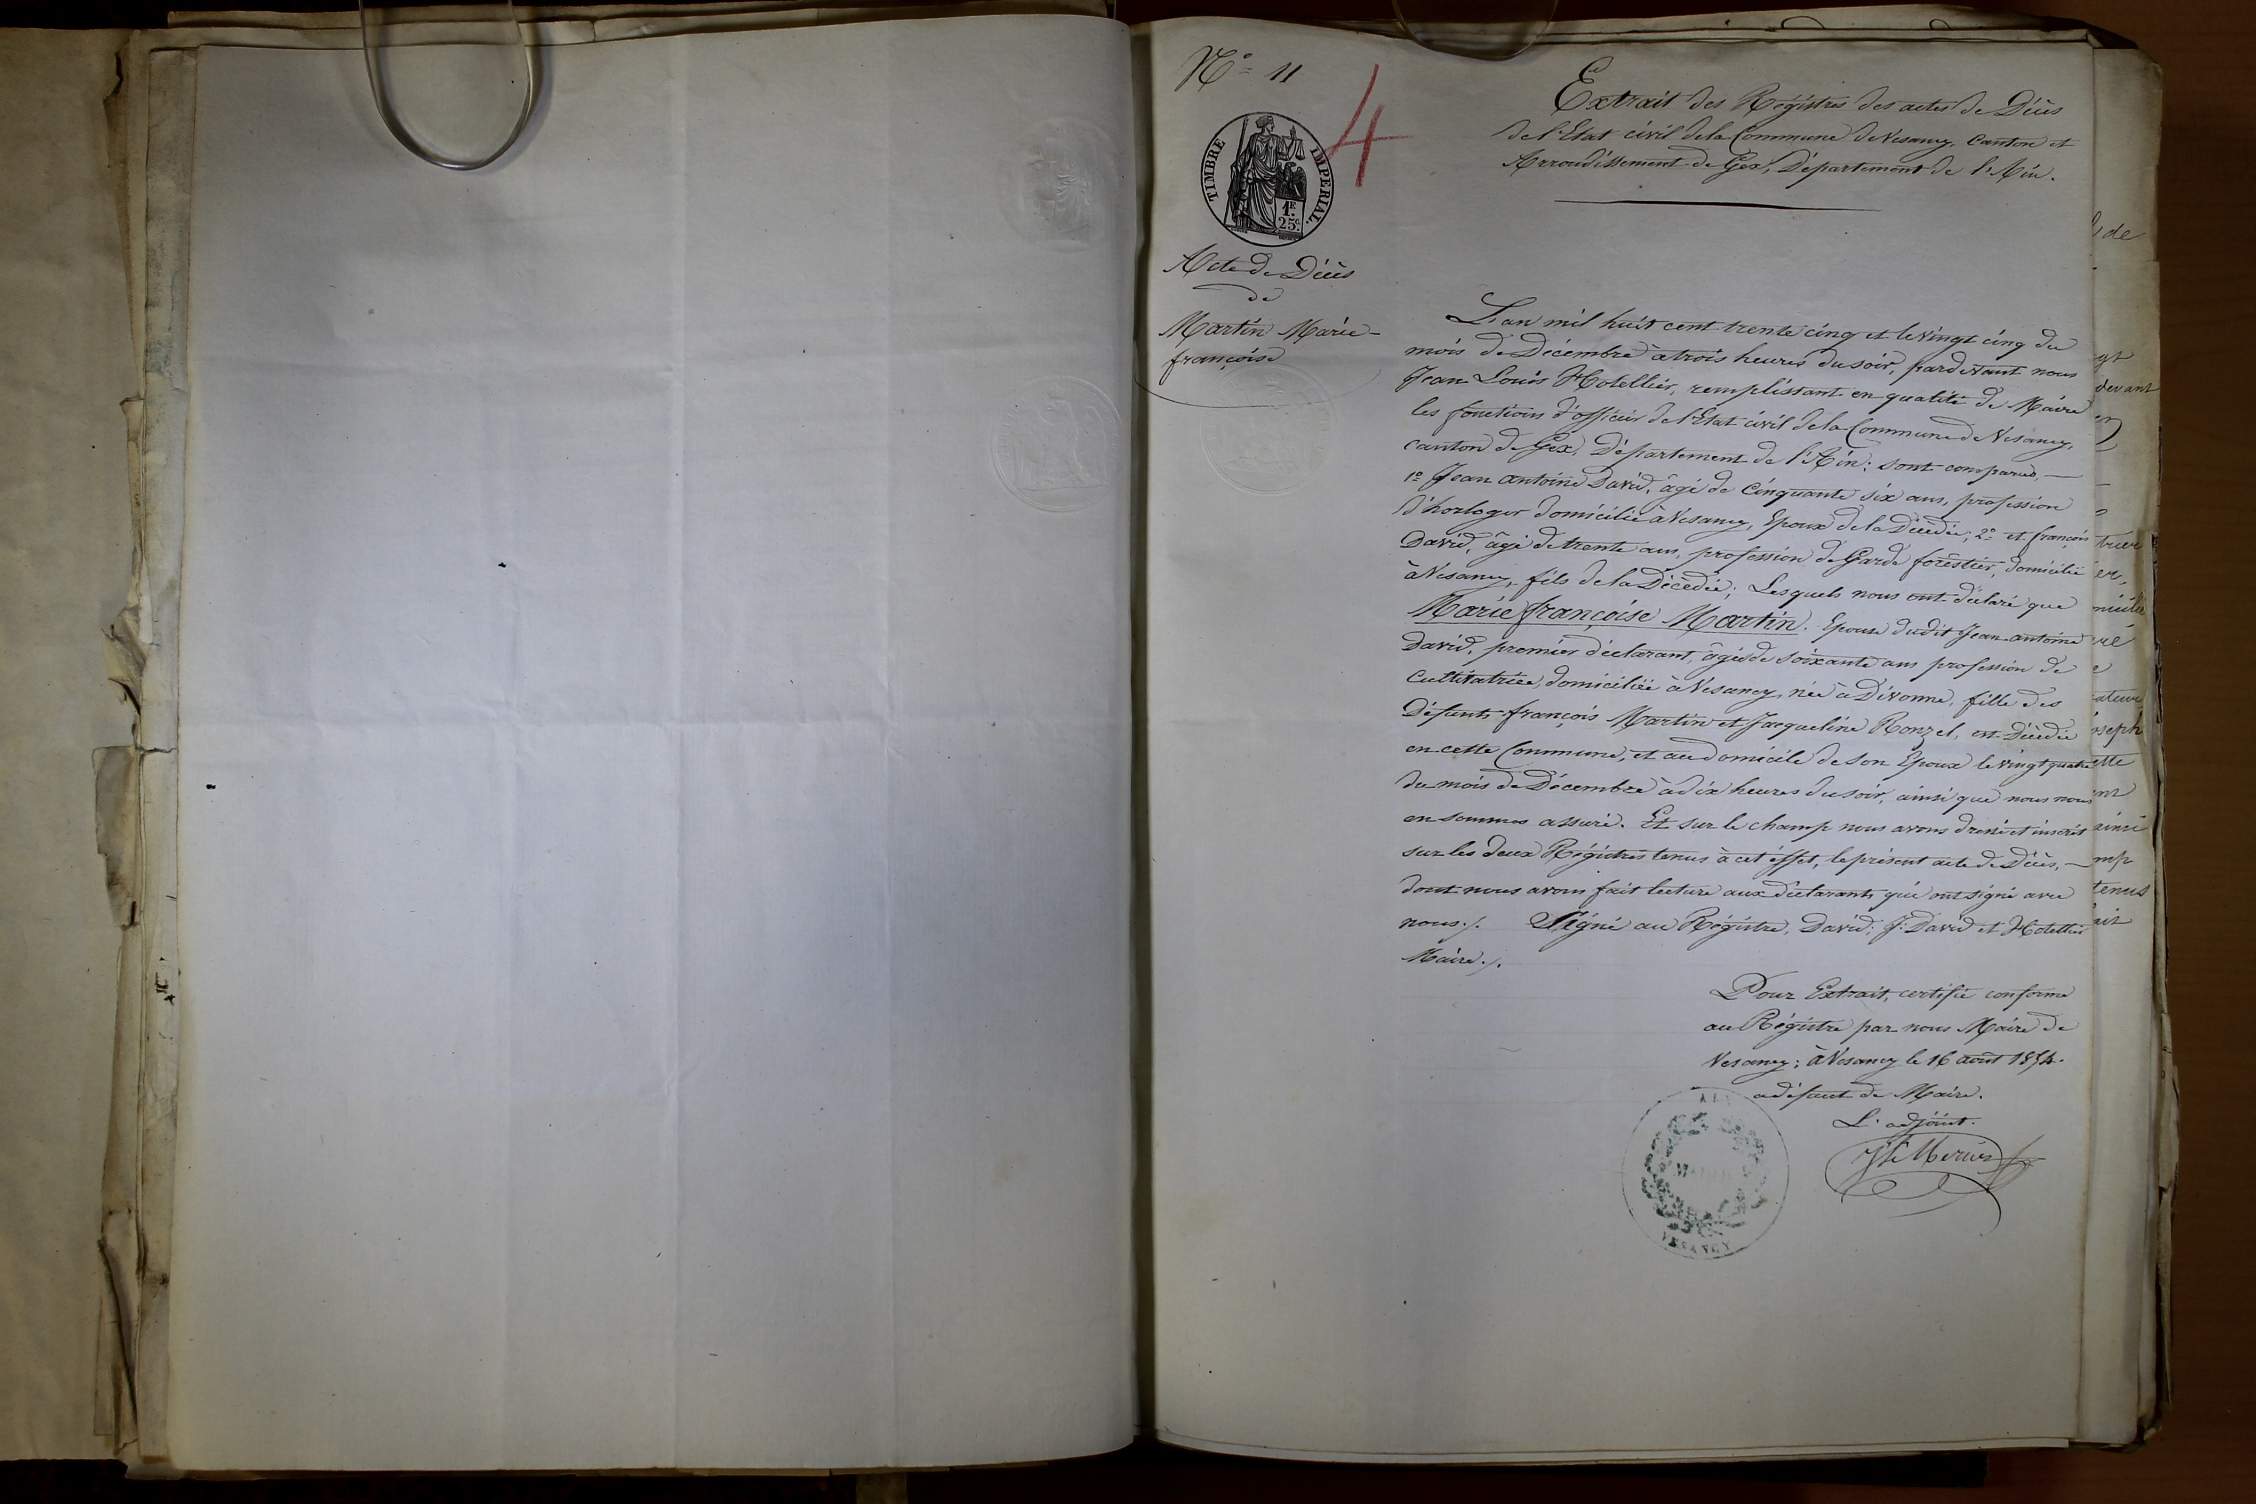 N° 11
4
TIMBRE IMPERIAL.
1F.
25c.
Acte de Décès
de
Martin Marie-
françoise
Extrait des Régistres des actes de Décès
de l'Etat civil de la Commune de Vesancy, Canton et
Arrondissement de Gex, Département de l'Ain.
L'an mil huit cent trente cinq et le vingt cinq du
mois de Décembre à trois heures du soir, pardevant nous
Jean Louis Hotellier, remplissant en qualité de Maire
les fonctions d'officier de l'Etat civil de la Commune de Vesancy,
canton de Gex, Département de l'Ain; sont comparus, —
1° Jean antoine David, âgé de Cinquante six ans, profession
d'horloger domicilié à Vesancy, Epoux de la Décédée; 2° et françois
David, âgé de trente ans, profession de Garde forestier, domicilié
à Vesancy, fils de la Décédée; Lesquels nous ont déclaré que
Marie françoise Martin. Epouse dudit Jean antoine
David, premier déclarant, âgée de soixante ans profession de
Cultivatrice, domiciliée à Vesancy, née à Divonne, fille des
Défunts françois Martin et Jacqueline Ronzel, est Décédée
en cette Commune, et au domicile de son Epoux le vingt quatre
du mois de Décembre à dix heures du soir, ainsi que nous nous
en sommes assuré. Et sur le champ nous avons dressé et inscrit
sur les deux Régistres tenus à cet éffet, le présent acte de Décès, —
dont nous avons fait lecture aux déclarants qui ont signé avec
nous./. Signé au Régistre, David; f. David et Hotellier
Maire./.
Pour Extrait, certifié conforme
au Régistre par nous Maire de
Vesancy; à Vesancy le 16 août 1854.
à défaut de Maire.
L'adjoint.
VESANCY